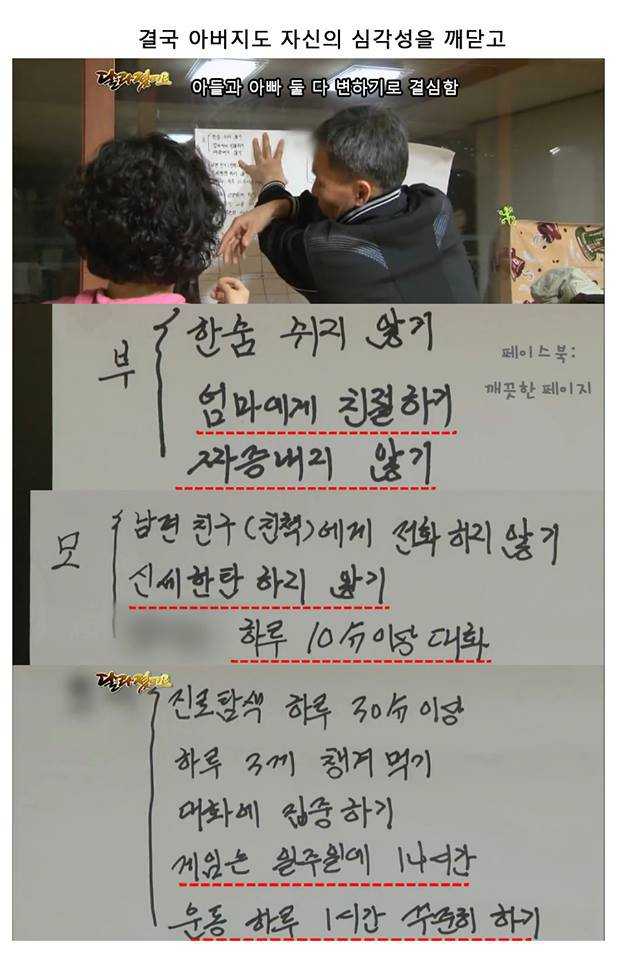 결국 아버지도 자신의 심각성을 깨닫고
달라졌어요
아들과 아빠 둘 다 변하기로 결심함
부
한숨 쉬지 않기
엄마에게 친절하기
짜증내지 않기
페이스북:
깨끗한 페이지
모
남편 친구(친척)에게 전화 하지 않기
신세한탄 하지 않기
하루 10分이상 대화
달라졌어요
진로탐색 하루 30分이상
하루 3끼 챙겨 먹기
대화에 집중하기
게임은 일주일에 14시간
운동 하루 1시간 꾸준히 하기